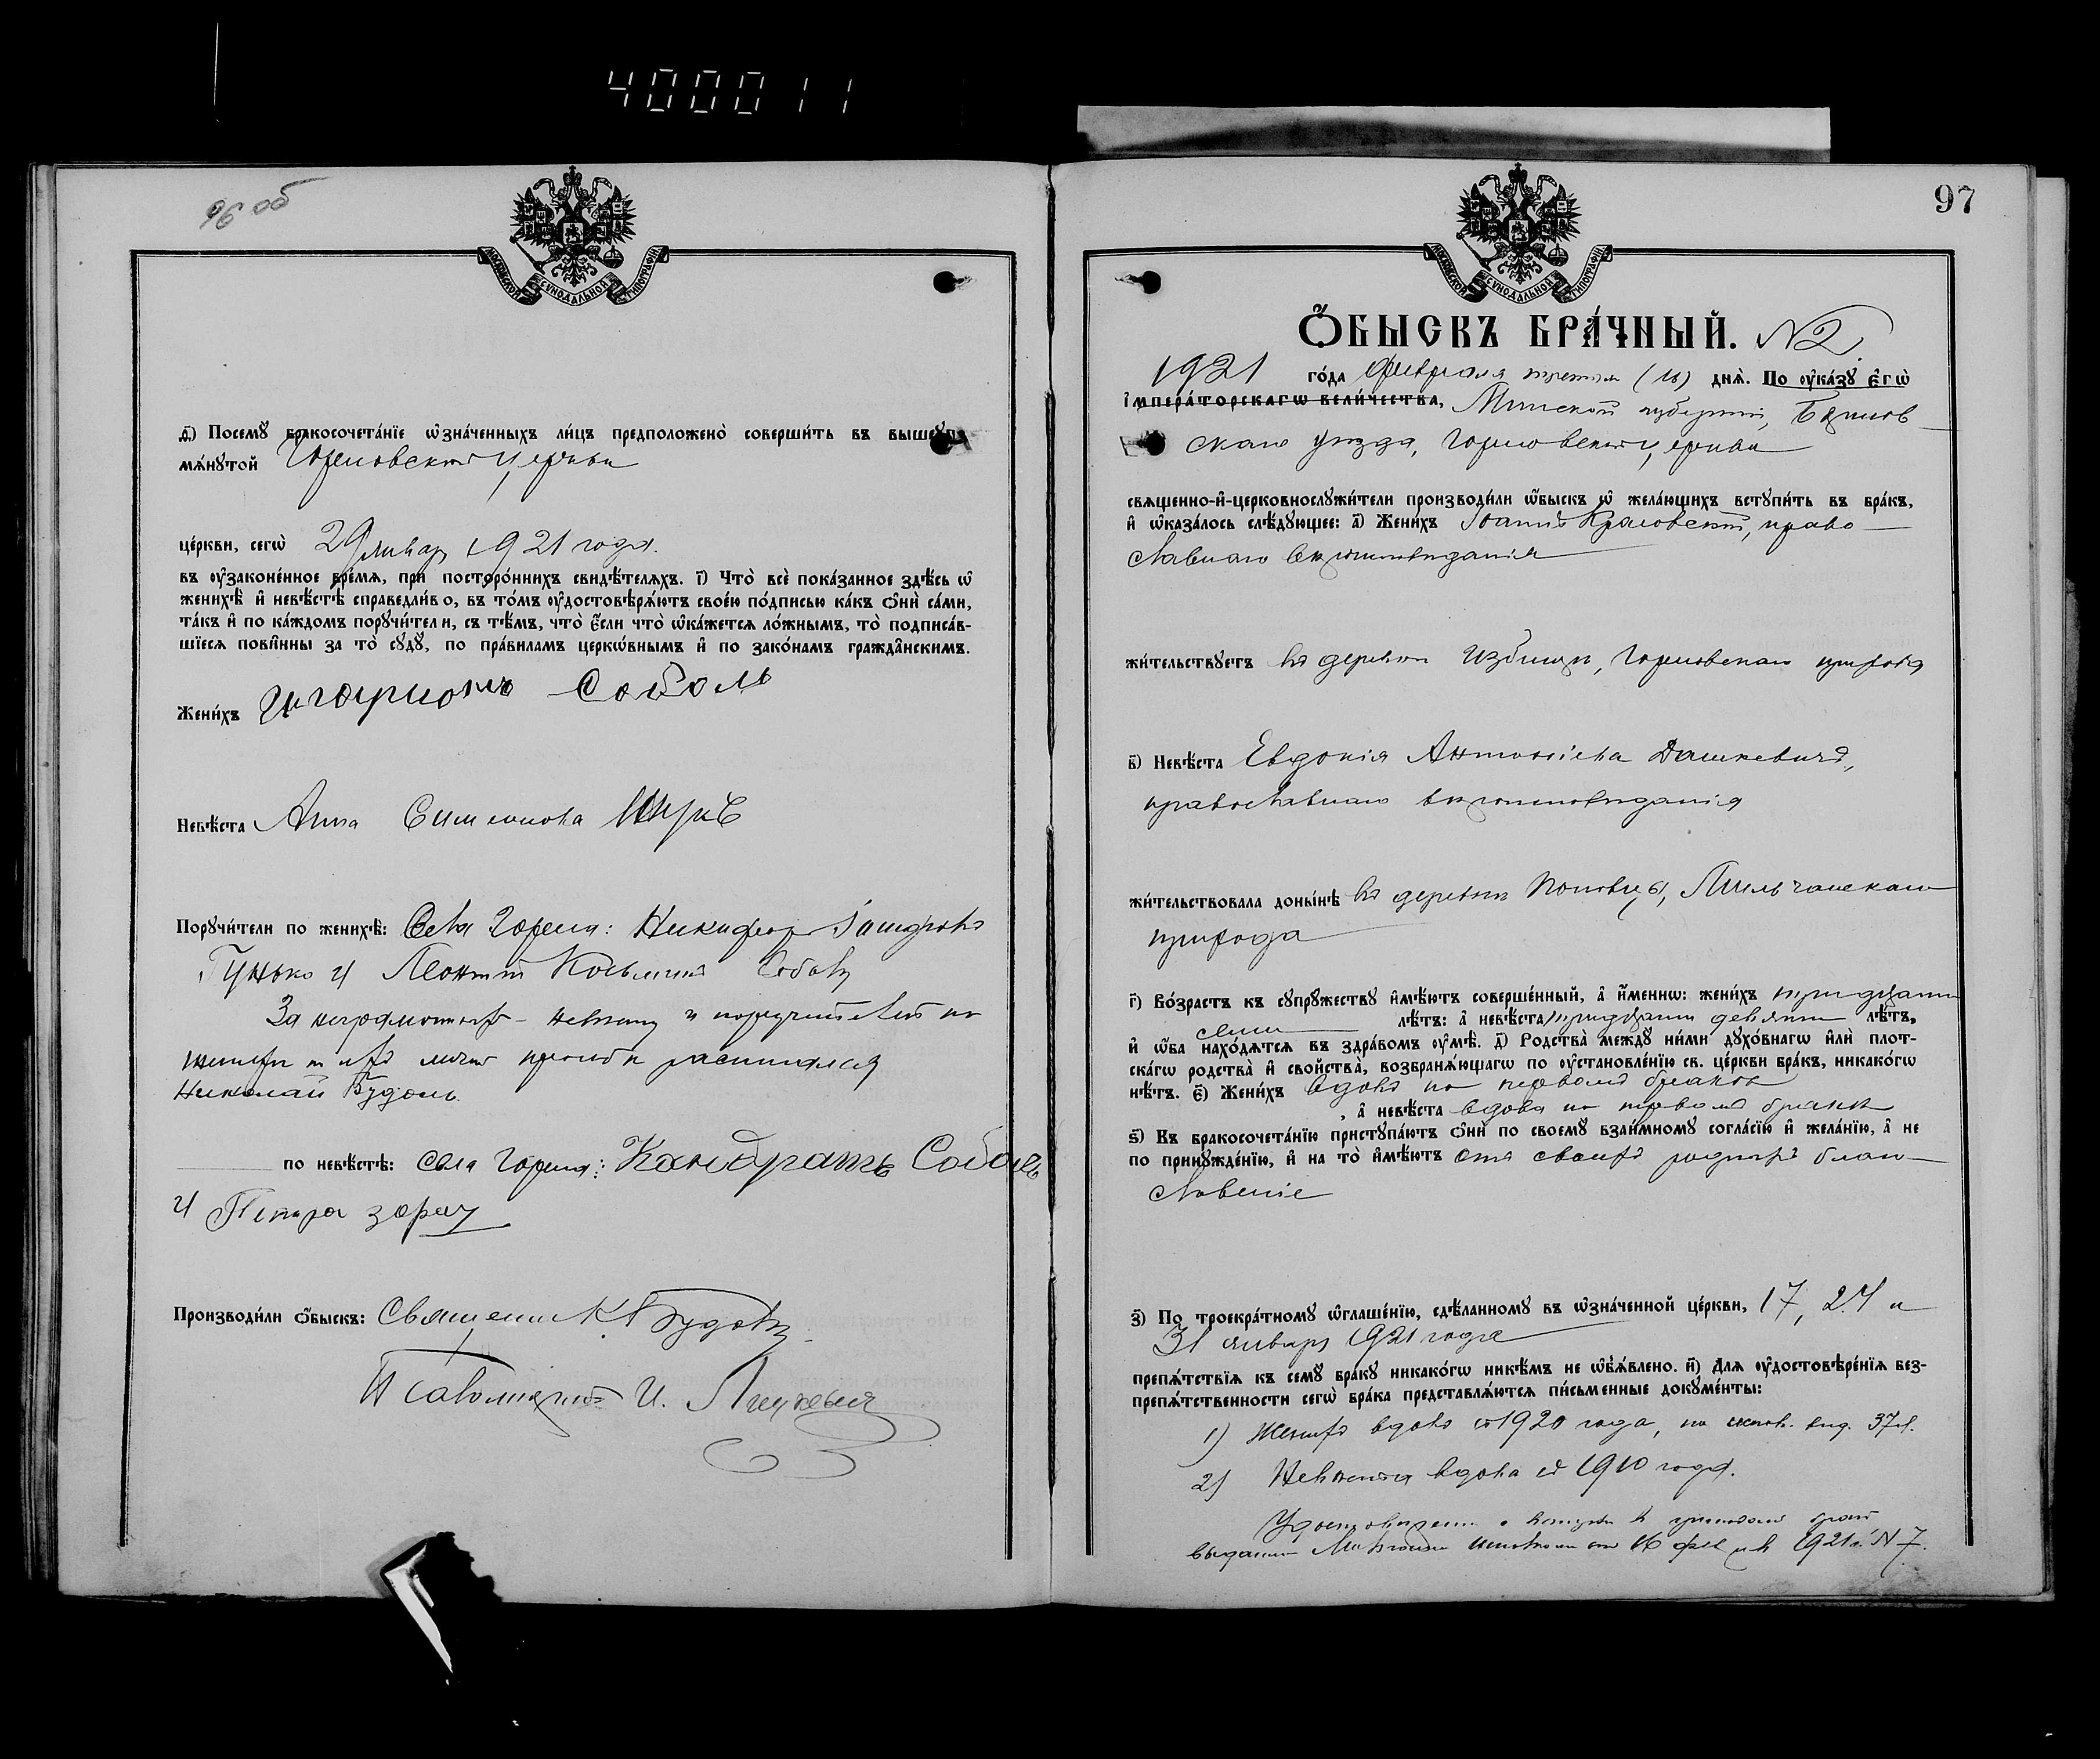 4000011
96 об
МОСКОВСКОЙ СѴНОДАЛЬНОЙ ТИПОГРАФІИ
д҃) Посемꙋ бракосочета́нїе ѡ҆зна́ченныхъ ли́цъ предположено̀ соверши́ть въ вышеꙋпо
мѧ́нꙋтой Горновской церкви
це́ркви, сегѡ̀ 29 январ 1921 года.
въ ᲂу҆зако́ненное вре́мѧ, прѝ посторо́ннихъ свидѣ́телѧхъ. і҃) Что̀ всѐ пока́занное здѣ́сь ѡ҆
женихѣ̀ и҆ невѣ́стѣ справедли́во, въ то́мъ ᲂу҆достовѣрѧ́ютъ свое́ю по́дписью ка́къ ѻ҆нѝ са́ми,
та́къ и҆ по ка́ждомъ порꙋчи́тели, съ тѣ́мъ, что̀ є҆́сли что̀ ѡ҆ка́жетсѧ ло́жнымъ, то̀ подписа́в-
шїесѧ пови́нны за то̀ сꙋдꙋ̀, по пра́виламъ церкѡ́внымъ и҆ по зако́намъ гражда̑нскимъ.
Жени́хъ Соболь
Невѣ́ста Анна Симеонова
Порꙋчи́тели по женихѣ̀: Села Горна: Никифор
Гунько и Леонтій Косьминъ Соболь
За неграмотных невѣсту и поручителей по
женихѣ и ихъ личной просьбѣ расписался
Николай Будоль.
по невѣ́стѣ: села Горна: Кандратъ Соболь
и Петра
Производи́ли ѻ҆́быскъ: Священник
Псаломщикъ И.
97
МОСКОВСКОЙ СѴНОДАЛЬНОЙ ТИПОГРАФІИ
Ѻ҆́БЫСКЪ БРА́ЧНЫЙ. N2.
1921 го́да февраля третьяго дня̀. По ᲂу҆ка́зꙋ є҆гѡ̀
і҆мпера́торскагѡ вели́чества, Минской губерніи, Борисов
скаго уѣзда, Горновской церкви
свѧщенно-и҆-церковнослꙋжи́тели производи́ли ѡ҆́быскъ ѡ҆ жела́ющихъ встꙋпи́ть въ бра́къ,
и҆ ѡ҆каза́лось слѣ́дꙋющее: а҃) Жени́хъ Іоаннъ Красовскій, право
славнаго вѣроисповѣданія
жи́тельствꙋетъ въ деревни Избище, Горновскаго прихода
в҃) Невѣ́ста Евдокія Антоніева Дашкевичъ,
православнаго вѣроисповѣданія
жи́тельствовала доны́нѣ въ деревни Поповцы, Мильчанскаго
прихода
г҃) Во́зрастъ къ сꙋпрꙋ́жествꙋ и҆мѣ́ютъ соверше́нный, а҆ и҆́менно: жени́хъ тридцати
семи лѣ́тъ: а҆ невѣ́ста тридцати девяти лѣ́тъ,
и҆ ѻ҆́ба нахо́дѧтсѧ въ здра́вомъ ᲂу҆мѣ̀. д҃) Родства̀ междꙋ̀ ни́ми дꙋхо́внагѡ и҆лѝ плот-
ска́гѡ родства̀ и҆ сво́йства̀, возбранѧ́ющагѡ по ᲂу҆становле́нїю св. це́ркви бра́къ, никако́гѡ
нѣ́тъ. є҃) Жени́хъ вдовъ по первомъ бракѣ
, а҆ невѣ́ста вдова по первомъ бракѣ
ѕ҃) Къ бракосочета́нїю пристꙋпа́ютъ ѻ҆нѝ по своемꙋ̀ взаи́мномꙋ согла́сїю и҆ жела́нїю, а҆ не
по принꙋжде́нїю, и҆ на то̀ и҆мѣ́ютъ отъ своихъ родителей благо
словеніе
з҃) По троекра́тномꙋ ѡ҆глаше́нїю, сдѣ́ланномꙋ въ ѡ҆зна́ченной це́ркви, 17, 24 и
31 январ 1921 года
препѧ́тствїѧ къ семꙋ̀ бра́кꙋ никако́гѡ никѣ́мъ не ѡ҆б̾ѧ́влено. и҃) Длѧ ᲂу҆достовѣре́нїѧ без-
препѧ́тственности сегѡ̀ бра́ка представлѧ́ютсѧ пи́сьменные докꙋме́нты:
1) Женихъ вдовъ съ 1920 года, по испов. вѣд. 37 л.
2) Невѣста вдова съ 1910 года.
Удостовѣреніе о
выданно 16 1921 г. N 7.